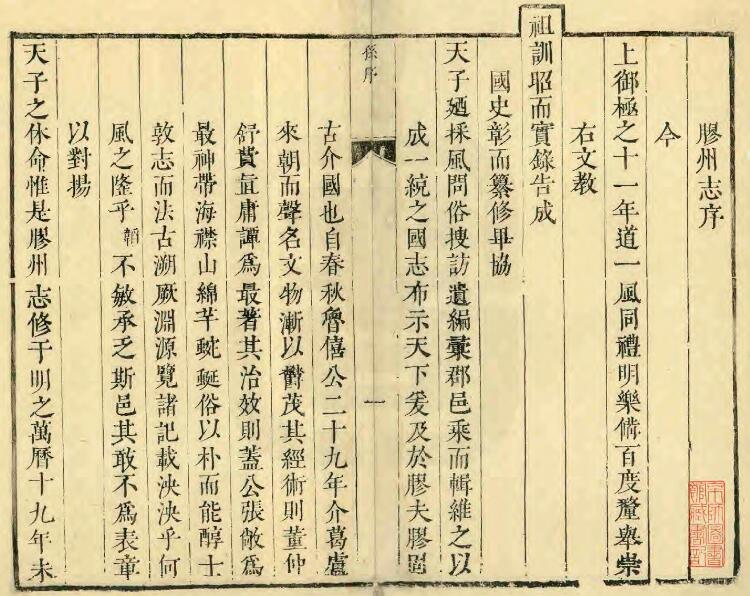 膠州志序
今
上御極之十一年道一風同禮明樂備百度釐舉崇
右文教
祖訓昭而實錄告成
國史彰而纂修畢協
天子廼採風問俗搜訪遺編彙郡邑乘而輯維之以
成一統之國志布示天下爰及於膠夫膠
孫序
一
古介國也自春秋魯僖公二十九年介葛盧
來朝而聲名文物漸以欝茂其經術則董仲
舒費直庸譚為最著其治效則蓋公張敞為
最神帶海襟山綿芊蜿蜒俗以朴而能醇士
敦志而法古溯厥淵源覽諸記載泱泱乎何
風之隆乎 不敏承乏斯邑其敢不為表章
以對揚
天子之休命惟是膠州志修于明之萬曆十九年未